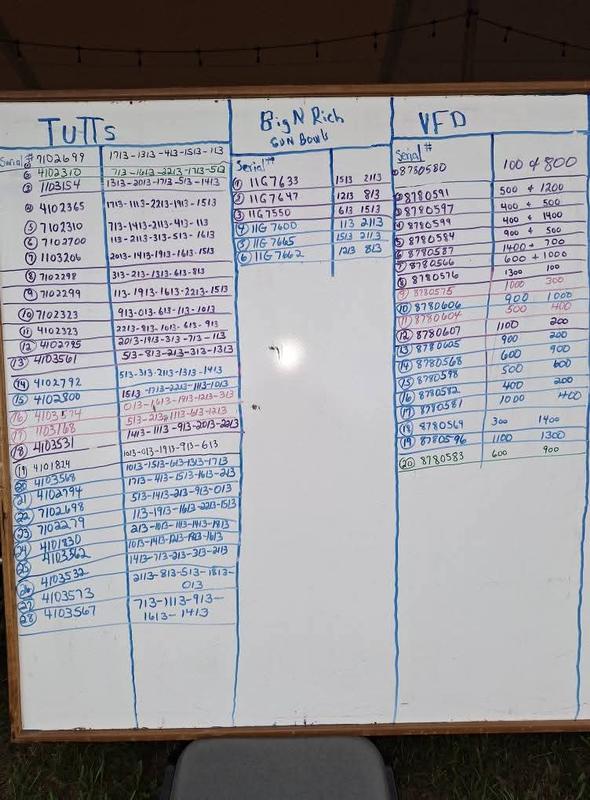 TUTTs
Serial # 7102699 1713-1313-413-1513-113
4102310 713-1613-2213-1713-513
1103154 1313-2013-1713-513-1413
4102365 1713-1113-2213-1913-1513
7102310 713-1413-2113-413-113
7102700 113-2113-313-513-1613
1103206 2013-1413-1913-1613-1513
8 7102298 313-213-1313-613-813
9 7102299 113-1913-1613-2213-1513
10 7102323 913-013-613-113-1013
11 4102323 2213-813-1013-613-913
12 4102795 2013-1913-313-713-113
13 4103561 513-813-213-313-1313
14 4102792 513-313-2113-1313-1413
15 4102800 1513-1713-2213-1113-1013
16 4103574 013-1613-1913-1213-313
17 1103168 513-2132-1113-613-1213
18 4103531 1413-1113-913-2013-2213
19 4101824 1013-013-1913-913-613
20 4103568 1013-1513-613-1313-1713
21 4102794 1713-413-1513-1613-213
22 7102698 513-1413-213-913-013
23 7102279 113-1913-1613-2213-1513
24 4101830 213-1013-1113-1413-1813
25 4103562 1013-1413-1213-1913-1613
26 4103532 1413-713-213-313-2113
27 4103573 2113-813-513-1813-
013
28 4103567 713-1113-913-
1613-1413
Big N Rich
GUN Bowls
Serial #
1 11G7633 1513 2113
2 11G7647 1213 813
3 11G7550 613 1513
4 11G 7600 113 2113
5 11G 7665 1513 2113
6 11G 7662 1213 813
VFD
Serial #
8780580 100 + 800
8780591 500 + 1200
8780597 400 + 500
8780599 400 + 1400
8780584 900 + 500
8780587 1400 + 700
8780566 600 + 1000
8 8780576 1300 100
9 8780575 1000 300
10 8780606 900 1000
11 8780604 500 400
12 8780607 1100 200
13 8780605 900 200
14 8780568 600 900
15 8780598 500 600
16 8780582 400 200
17 8780581 1000 400
18 8780569 300 1400
19 8780596 1100 1300
20 8780583 600 900